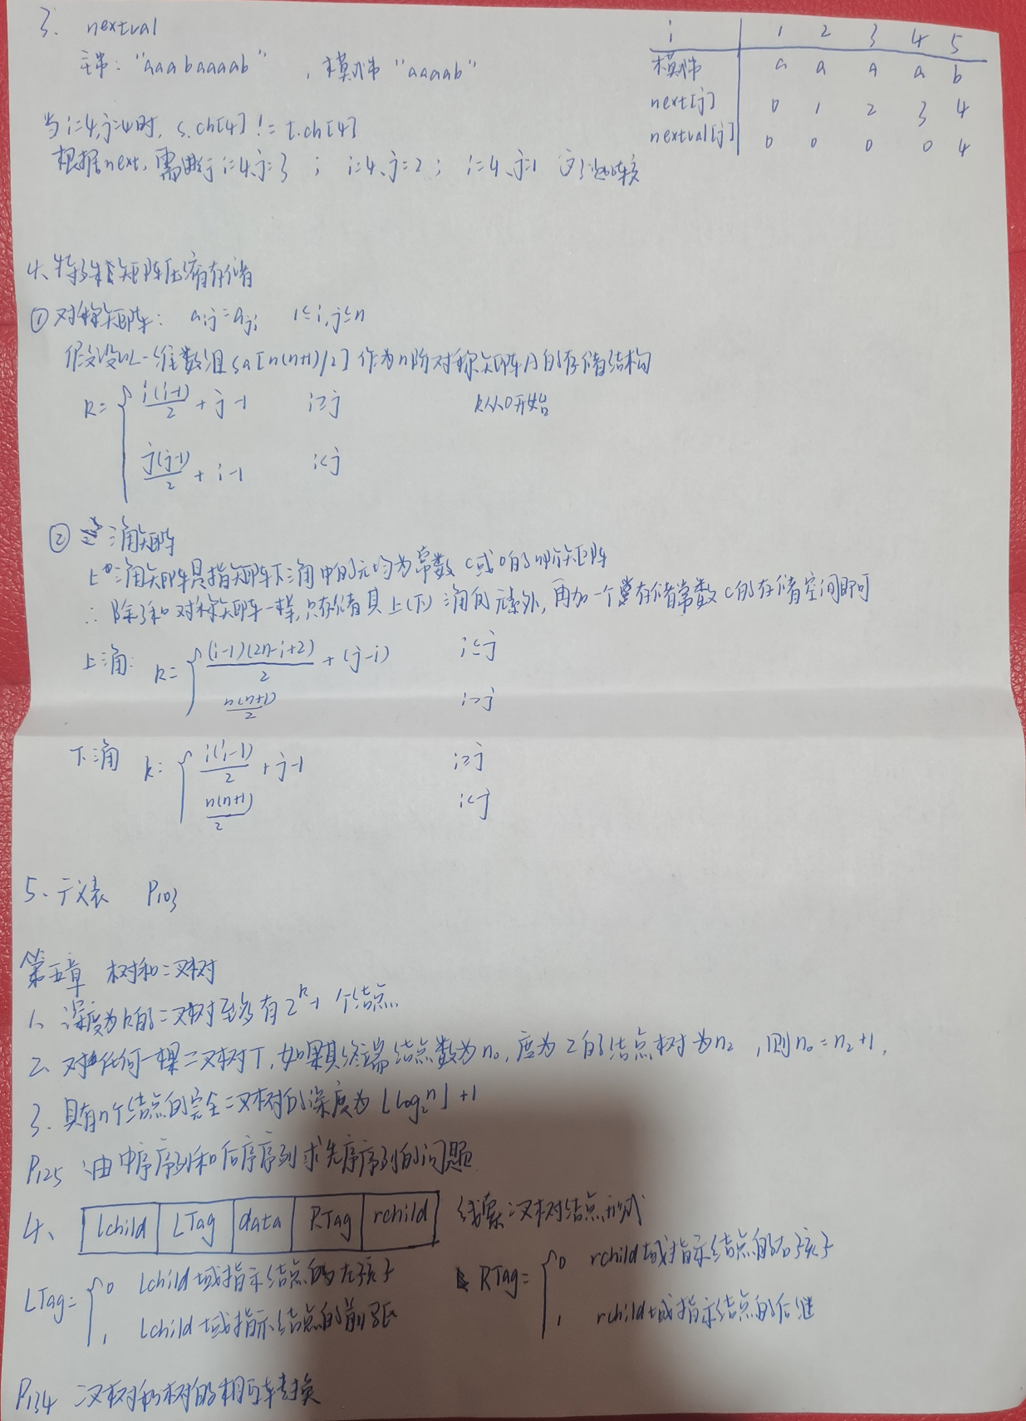 3. nextval
主串: "aaabaaaab" , 模式串 "aaaab"
i 1 2 3 4 5
模式串 a a a a b
next[j] 0 1 2 3 4
nextval[j] 0 0 0 0 4
当i=4,j=4时, s.ch[4] != t.ch[4]
根据next, 需进行 i=4,j=3 ; i=4、j=2 ; i=4、j=1 这3次比较
4、特殊矩阵压缩存储
① 对称矩阵: aij=aji 1≤i,j≤n
假设以一维数组sa[n(n+1)/2]作为n阶对称矩阵A的存储结构
k= { i(i-1)/2 + j-1 i≥j k从0开始
j(j-1)/2 + i-1 i<j
② 三角矩阵
上三角矩阵是指矩阵下三角中的元均为常数c或0的n阶矩阵
∴ 除了和对称矩阵一样,只存储其上(下)三角的元素外,再加一个存储常数c的存储空间即可
上三角: k= { (i-1)(2n-i+2)/2 + (j-i) i≤j
n(n+1)/2 i>j
下三角 k= { i(i-1)/2 + j-1 i≥j
n(n+1)/2 i<j
5、广义表 P103
第五章 树和二叉树
1、深度为k的二叉树至多有2^k-1个结点
2、对任何一棵二叉树T,如果其终端结点数为n₀,度为2的结点树为n₂,则n₀=n₂+1,
3.具有n个结点的完全二叉树的深度为⌊log₂n⌋+1
P125 由中序序列和后序序列求先序序列的问题
4、 lchild LTag data RTag rchild 线索二叉树结点形式
LTag= { 0 lchild域指示结点的左孩子 RTag= { 0 rchild域指示结点的右孩子
1 lchild域指示结点的前驱 1 rchild域指示结点的后继
P134 二叉树和树的相互转换